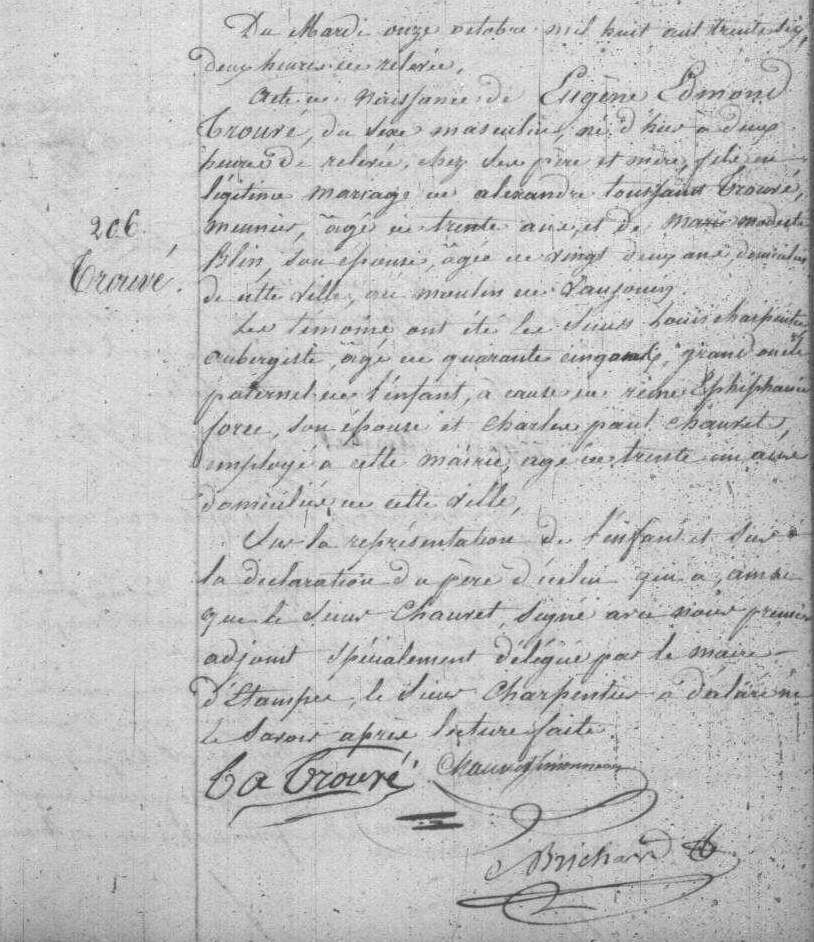 Du Mardi onze octobre mil huit cent trente six,
deux heures de relevée,
Acte de Naissance de Eugène Edmond
Trouvé, du sexe masculin, né d'hier à deux
heures de relevée, chez ses père et mère, fils en
légitime mariage de alexandre toussaint Trouvé,
meunier, âgé de trente ans, et de marie modeste
Blin, son épouse, âgée de vingt deux ans, domiciliés
de cette ville, au moulin de Vaujouin
206.
Trouvé.
Les témoins ont été les sieurs Louis charpentier
aubergiste, âgé de quarante cinq ans, grand oncle
paternel de l'enfant, à cause de reine Ephiphanie
force, son épouse et Charles paul Chauvet,
employé à cette mairie, âgé de trente un ans
domiciliés de cette ville,
Sur la représentation de l'enfant et sur
la déclaration du père d'icelui qui a, ainsi
que le sieur Chauvet, signé avec nous premier
adjoint spécialement délégué par le maire
d'Etampes, le sieur Charpentier a déclaré ne
le savoir après lecture faite.
T a Trouvé
Chauvet
Brichard